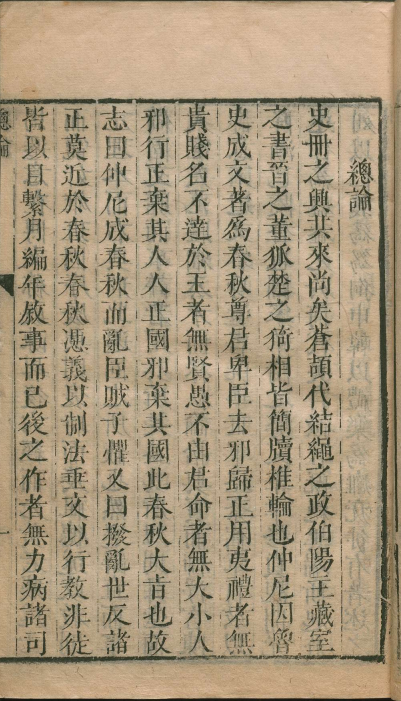 總論
史冊之興其來尚矣蒼頡代結繩之政伯陽主藏室
之書晉之董狐楚之倚相皆簡牘椎輪也仲尼因魯
史成文著爲春秋尊君卑臣去邪歸正用夷禮者無
貴賤名不達於王者無賢愚不由君命者無大小人
邪行正棄其人人正國邪棄其國此春秋大旨也故
志曰仲尼成春秋而亂臣賊子懼又曰撥亂世反諸
正莫近於春秋春秋憑義以制法垂文以行教非徒
皆以日繫月編年敘事而已後之作者無力病諸司
總論
一